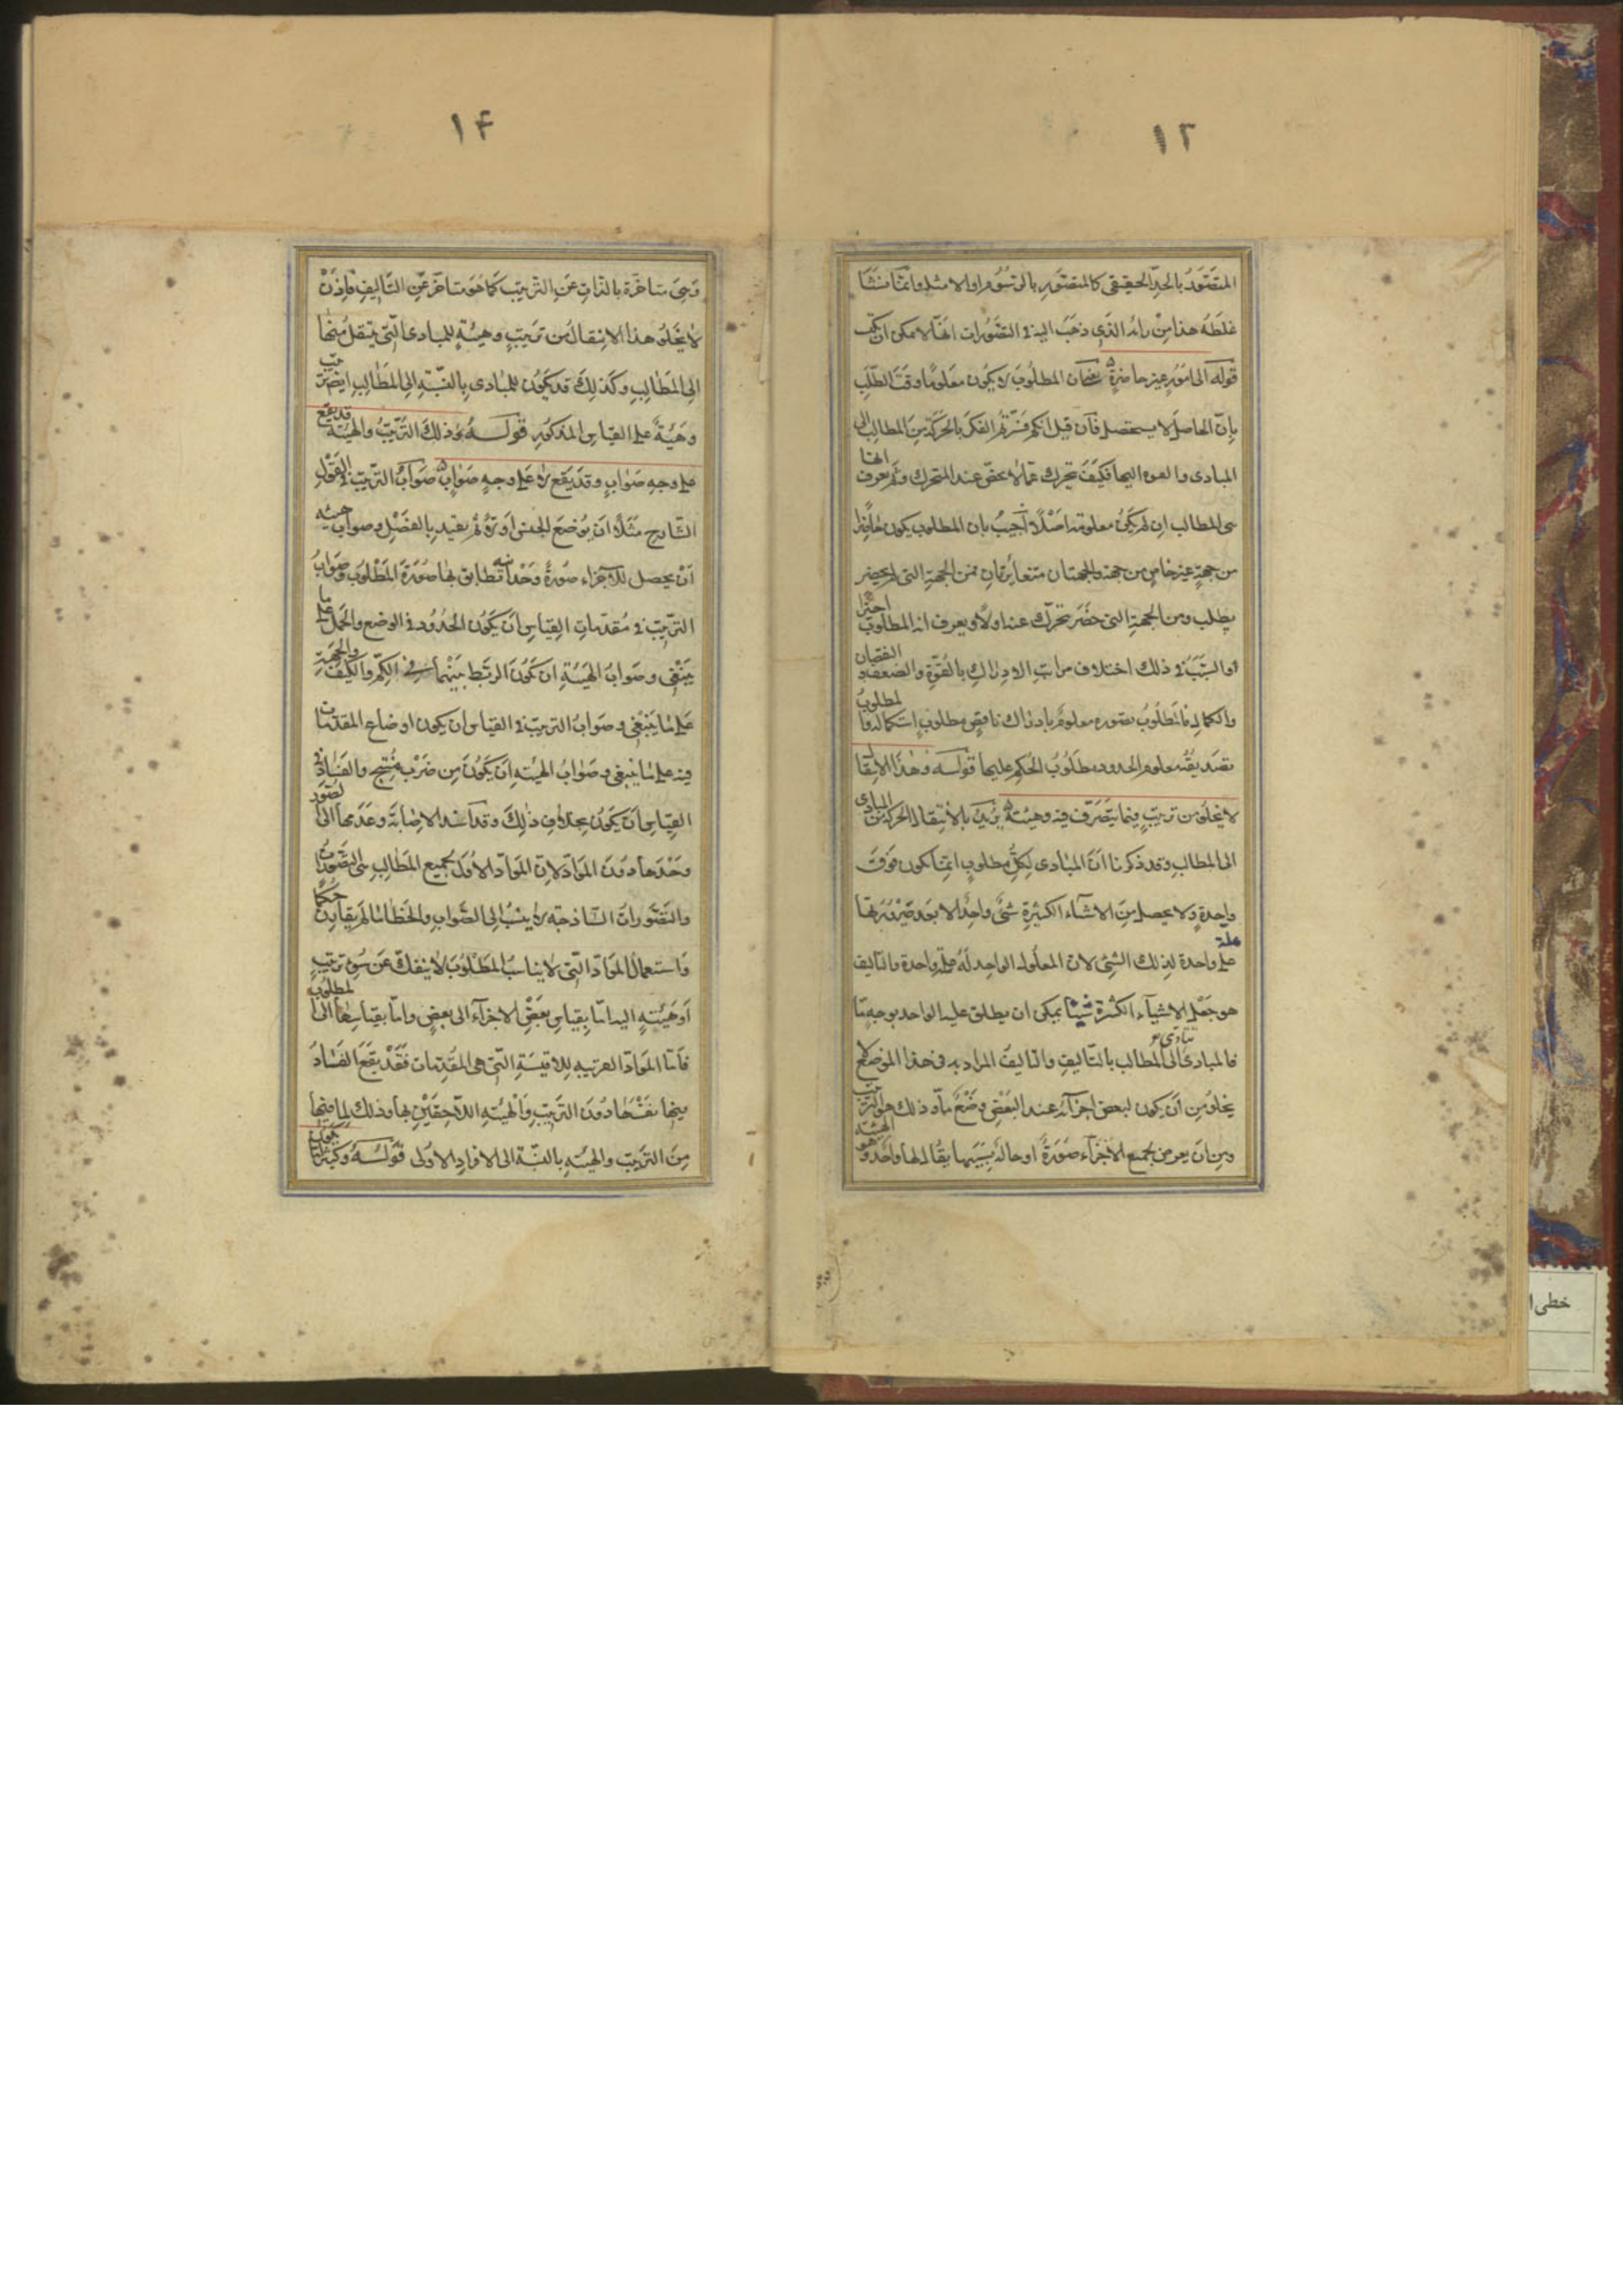 ١٣
المتصور بالحد الحقيقى كالمتصور بالرسوم او الامثلة وانما منشأ
غلطه هذا من رايه الذى ذهب اليه فى التصورات انها لا يمكن ان تكتسب
قوله الى امور غير حاضرة يعنى ان المطلوب لا يكون معلوما وقت الطلب
بان الحاصل لا يستحصل فان قيل انكم فسرتم الفكر بالحركة من المطالب الى
المبادى والعود اليها فكيف تتحرك عما لا يحضر عند المتحرك وبم يعرف انها
هى المطالب ان لم يكن معلومة اصلا اجيب بان المطلوب يكون حاضرا
من جهة غير حاضر من جهة والجهتان متغايرتان فمن الجهة التى لم يحضر
يطلب ومن الجهة التى حضر تتحرك عنه اولا ويعرف انه المطلوب اخيرا
والسبب فى ذلك اختلاف مراتب الادراك بالقوة والضعف والنقصان
والكمال فالمطلوب تصوره معلوم بادراك ناقص مطلوب استكماله والمطلوب
تصديقه معلوم الحدود مطلوب الحكم عليها قوله وهذا الانتقال
لا يخلو من ترتيب فيما يتصرف فيه وهيئة يريد بالانتقال الحركة من المبادى
الى المطالب وقد ذكرنا ان المبادى لكل مطلوب انما يكون فوق
واحدة ولا يحصل من الاشياء الكثيرة شئ واحد الا بعد صيرورتها
علة واحدة لذلك الشئ لان المعلول الواحد له علة واحدة والتاليف
هو جعل الاشياء الكثيرة شيئا يمكن ان يطلق عليه الواحد بوجه ما
فالمبادى تتادى الى المطالب بالتاليف والتاليف المراد به فى هذا الموضع لا
يخلو من ان يكون لبعض اجزائه عند البعض وضع ما وذلك هو الترتيب
ومن ان يعرض لجميع الاجزاء صورة او حالة بسببها يقال لها واحد وهو الهيئة
١۴
وهى متاخرة بالذات عن الترتيب كما هو متاخر عن التاليف فاذن
لا يخلو هذا الانتقال من ترتيب وهيئة للمبادى التى ينتقل منها
الى المطالب وكذلك قد يكون للمبادى بالنسبة الى المطالب ايضا ترتيب
وهيئة على القياس المذكور قوله وذلك الترتيب والهيئة قد يقع
على وجه صواب وقد يقع لا على وجه صواب صواب الترتيب فى القول
الشارح مثلا ان يوضع الجنس اولا ثم يقيد بالفصل وصواب هيئته
ان يحصل للاجزاء صورة وحدانية تطابق بها صورة المطلوب وصواب
الترتيب فى مقدمات القياس ان يكون الحدود فى الوضع والحمل على ما
ينبغى وصواب الهيئة ان يكون الربط بينهما فى الكم والكيف والجهة
على ما ينبغى وصواب الترتيب فى القياس ان يكون اوضاع المقدمات
فيه على ما ينبغى وصواب الهيئة ان يكون من ضرب منتج والفساد فى
القياس ان يكون بخلاف ذلك وقد اسند الاصابة وعدمها الى الصور
وحدها دون المواد لان المواد الاول لجميع المطالب هى التصورات
والتصورات الساذجة لا ينسب الى الصواب والخطا ما لم يقارن حكما
واستعمال المواد التى لا يناسب المطلوب لا ينفك عن سوء ترتيب
او هيئة البتة اما بقياس بعض الاجزاء الى بعض واما بقياسها الى المطلوب
فاما المواد القريبة للاقيسة التى هى المقدمات فقد يقع الفساد
فيها نفسها دون الترتيب والهيئة اللاحقين بها وذلك لما فيها
من الترتيب والهيئة بالنسبة الى الافراد الاولى قوله وكثيرا ما يكون
خطى ا